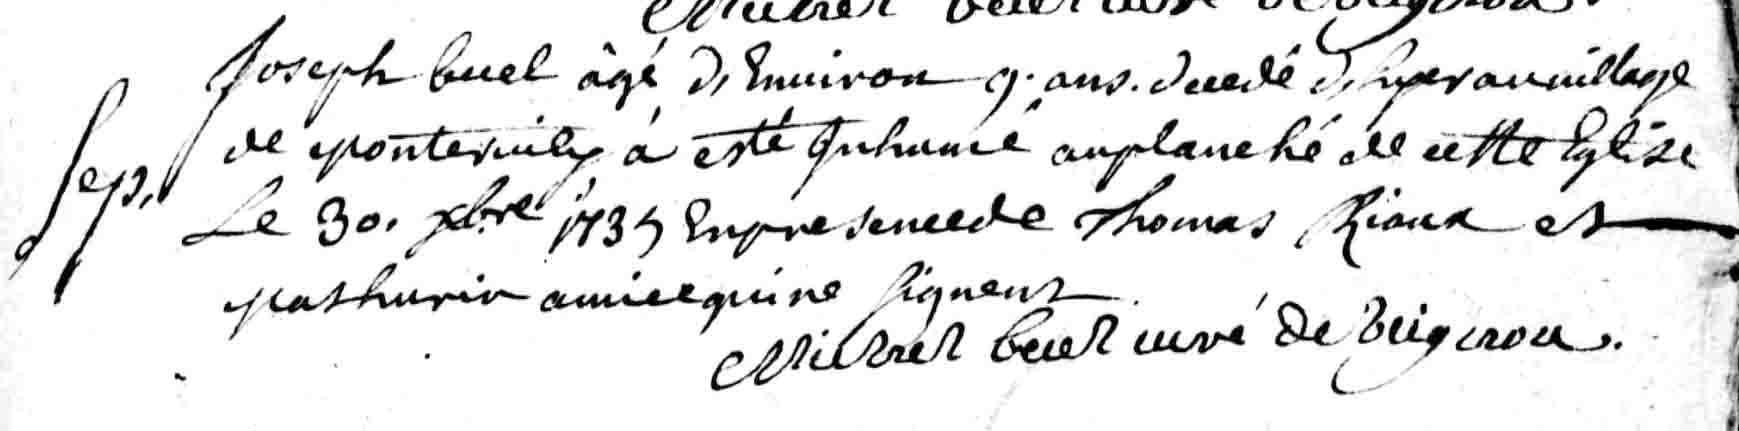 Joseph buel âgé d'Environ 9. ans. decedé d'hyer au village
Sep. de Monteruily à esté Inhumé au planché de cette Eglise
Le 30. xbre 1735 En presence de Thomas Riaux et
Mathurin amice qui ne signent.
buel curé de